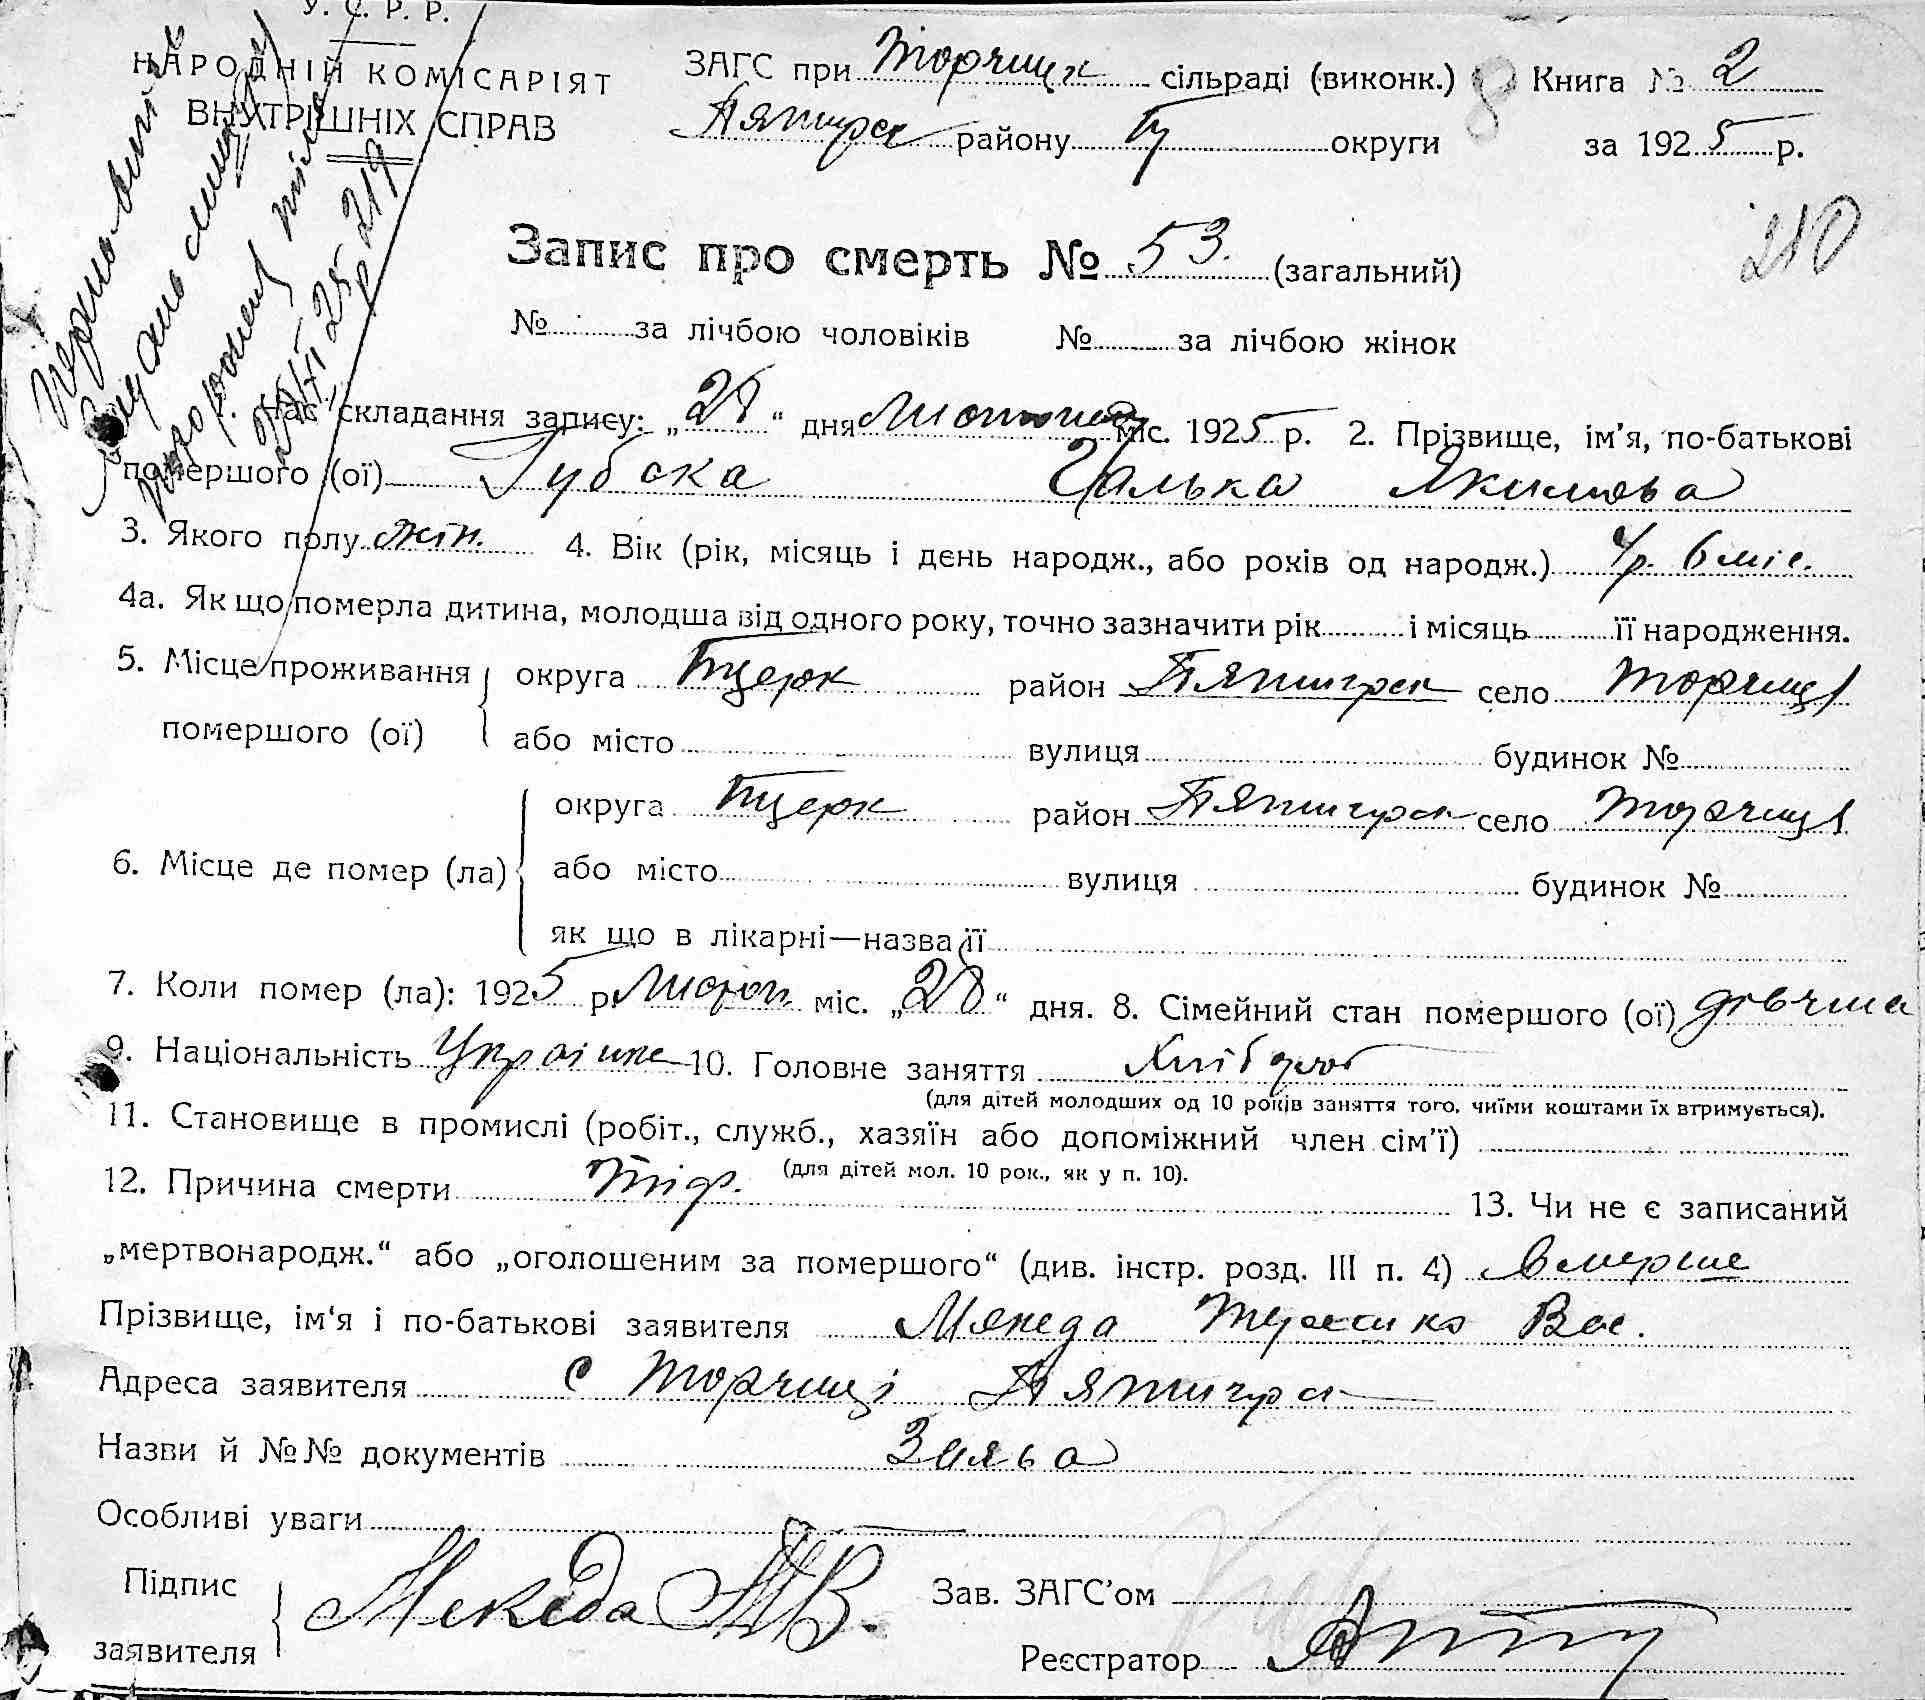 У. С. Р. Р.
НАРОДНІЙ КОМІСАРІЯТ
ВНУТРІШНІХ СПРАВ
ЗАГС при Торчицк сільраді (виконк.) 8 Книга № 2
Пятигрск району Бц округи за 1925 р.
210
Запис про смерть № 53. (загальний)
№ за лічбою чоловіків № за лічбою жінок
час складання запису: „28“ дня Листопад міс. 1925 р. 2. Прізвище, ім'я, по-батькові
помершого (ої) Губска Галька Якимова
3. Якого полу жін. 4. Вік (рік, місяць і день народж., або років од народж.) 4р. 6 міс.
4а. Як що померла дитина, молодша від одного року, точно зазначити рік і місяць її народження.
5. Місце проживання округа Бцерк район Пятигрск село Торчиці
помершого (ої) або місто вулиця будинок №
округа Бцерк район Пятигрск село Торчиці
6. Місце де помер (ла) або місто вулиця будинок №
як що в лікарні—назва її
7. Коли помер (ла): 1925 р. Листоп. міс. „28“ дня. 8. Сімейний стан помершого (ої) дівчина
9. Національність Українк 10. Головне заняття Хлібороб
(для дітей молодших од 10 років заняття того, чиїми коштами їх втримується).
11. Становище в промислі (робіт., служб., хазяїн або допоміжний член сім'ї)
(для дітей мол. 10 рок., як у п. 10).
12. Причина смерти Тіф. 13. Чи не є записаний
„мертвонародж.“ або „оголошеним за помершого“ (див. інстр. розд. III п. 4) вмерше
Прізвище, ім'я і по-батькові заявителя Вас.
Адреса заявителя с Торчиці Пятигрск
Назви й №№ документів Заява
Особливі уваги
Підпис
заявителя
Зав. ЗАГС'ом
Реєстратор